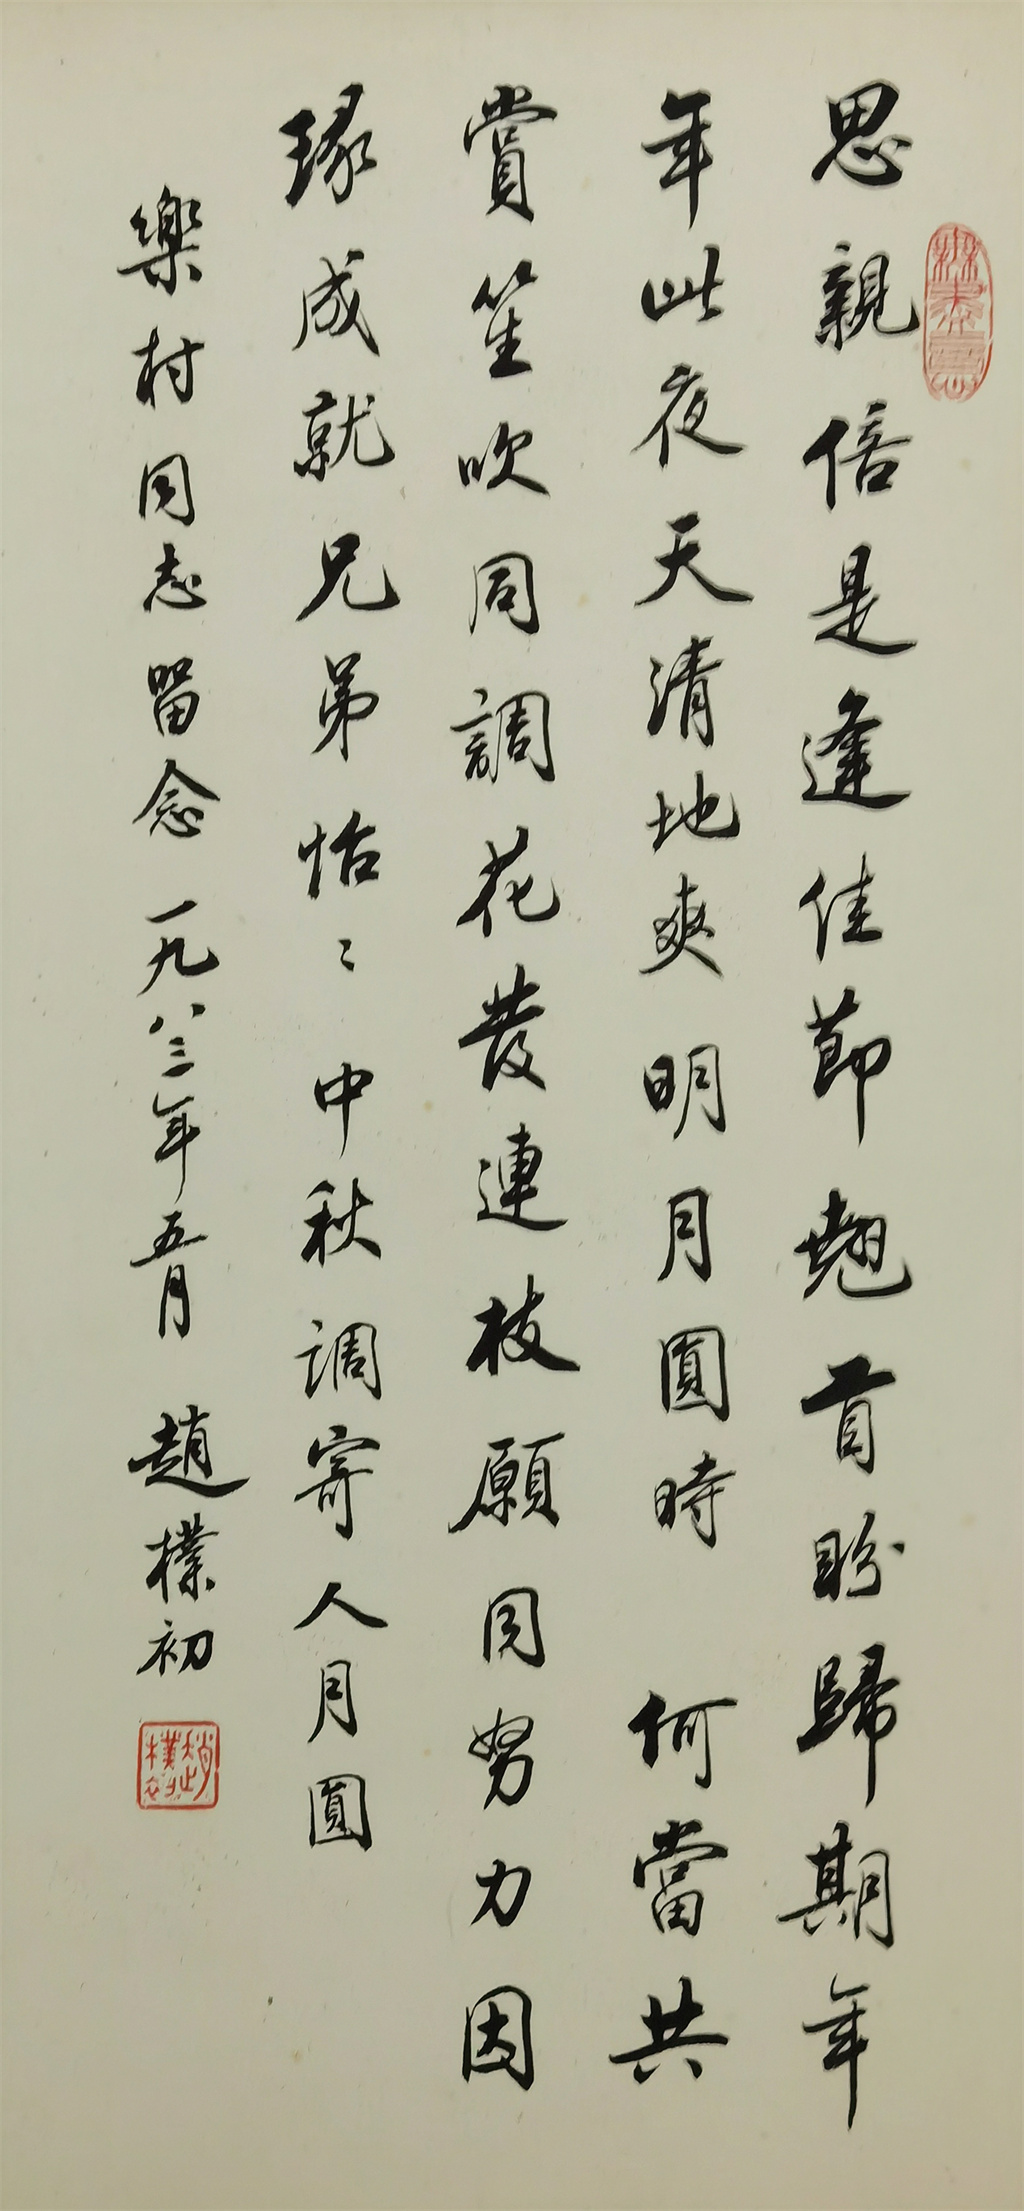 思親倍是逢佳節翹首盼歸期年
年此夜天清地爽明月圓時何當共
賞笙吹同調花發連枝願同努力因
緣成就兄弟怡〻中秋調寄人月圓
樂村同志留念一九八三年五月趙樸初
趙樸初